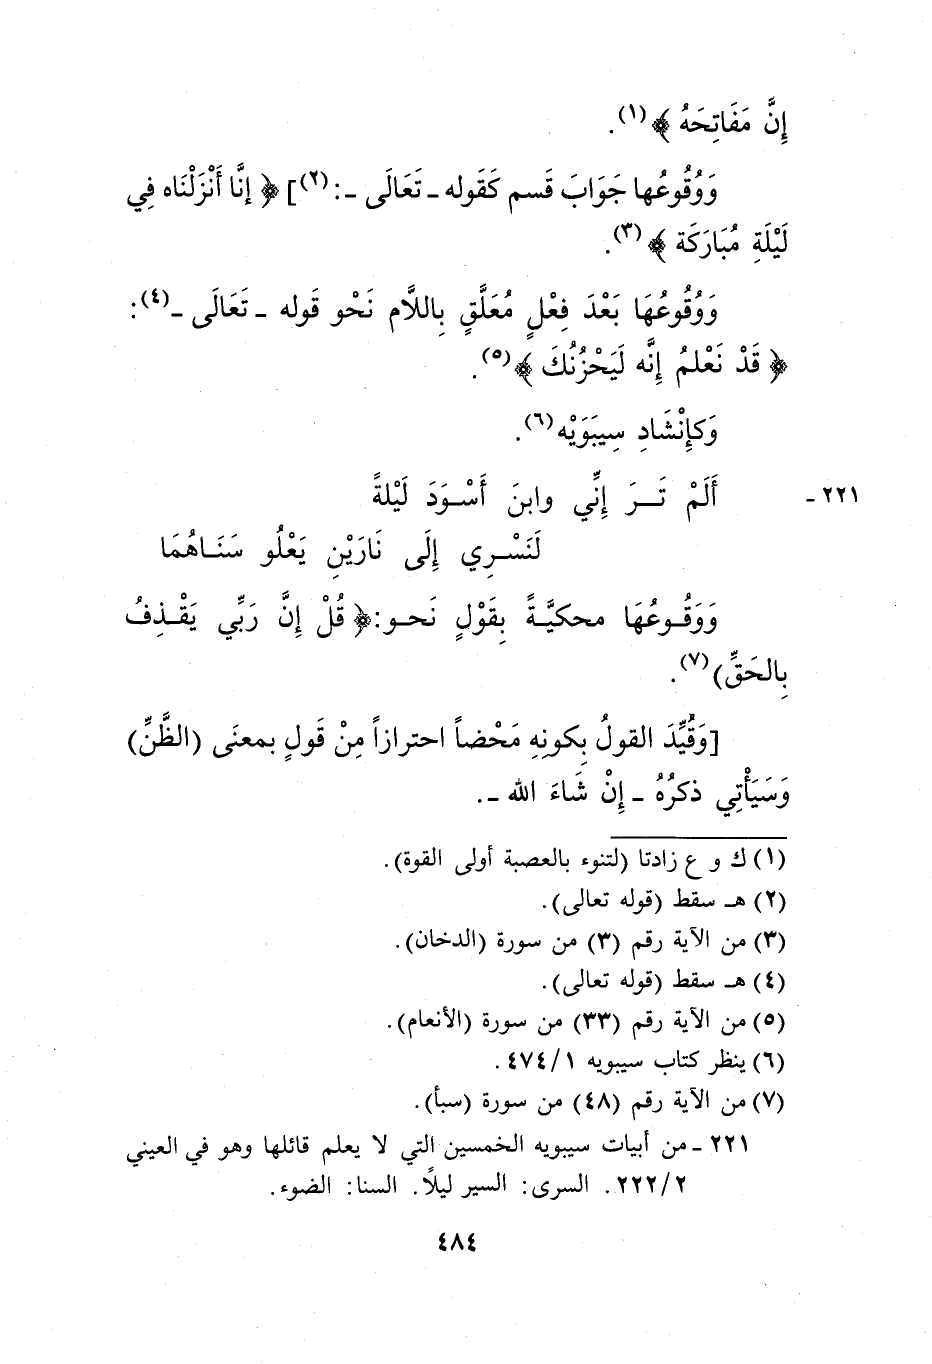 إِنَّ مَفَاتِحَهُ ﴾(١).
وَوُقُوعُها جَوَابَ قَسم كَقَوله - تَعَالَى -:(٢)] ﴿ إنَّا أَنْزَلْنَاه فِي
لَيْلَةِ مُبَارَكَة ﴾(٣).
وَوُقُوعُهَا بَعْدَ فِعْلٍ مُعَلَّقٍ بِاللَّام نَحْو قَوله - تَعَالَى -(٤):
﴿ قَدْ نَعْلمُ إِنَّه لَيَحْزُنُكَ ﴾(٥).
وَكإِنْشَادِ سِيبَوَيْه(٦).
٢٢١ - أَلَمْ تَـرَ إِنِّي وابنَ أَسْـوَدَ لَيْلةً
لَنَسْـرِي إِلَى نَارَيْنِ يَعْلُو سَنَـاهُمَا
وَوَقُـوعُهَا محكيَّـةً بِقَوْلٍ نَحـو: ﴿ قُلْ إِنَّ رَبِّي يَقْـذِفُ
بِالحَقِّ)(٧).
[وَقُيِّدَ القولُ بِكونِهِ مَحْضاً احترازاً مِنْ قَولٍ بمعنَى (الظَّنِّ)
وَسَيَأْتِي ذكرُهُ - إِنْ شَاءَ الله -.
(١) ك و ع زادتا (لتنوء بالعصبة أولى القوة).
(٢) هـ سقط (قوله تعالى).
(٣) من الآية رقم (٣) من سورة (الدخان).
(٤) هـ سقط (قوله تعالى).
(٥) من الآية رقم (٣٣) من سورة (الأنعام).
(٦) ينظر كتاب سيبويه ١/ ٤٧٤.
(٧) من الآية رقم (٤٨) من سورة (سبأ).
٢٢١ - من أبيات سيبويه الخمسين التي لا يعلم قائلها وهو في العيني
٢/ ٢٢٢. السرى: السير ليلًا. السنا: الضوء.
٤٨٤